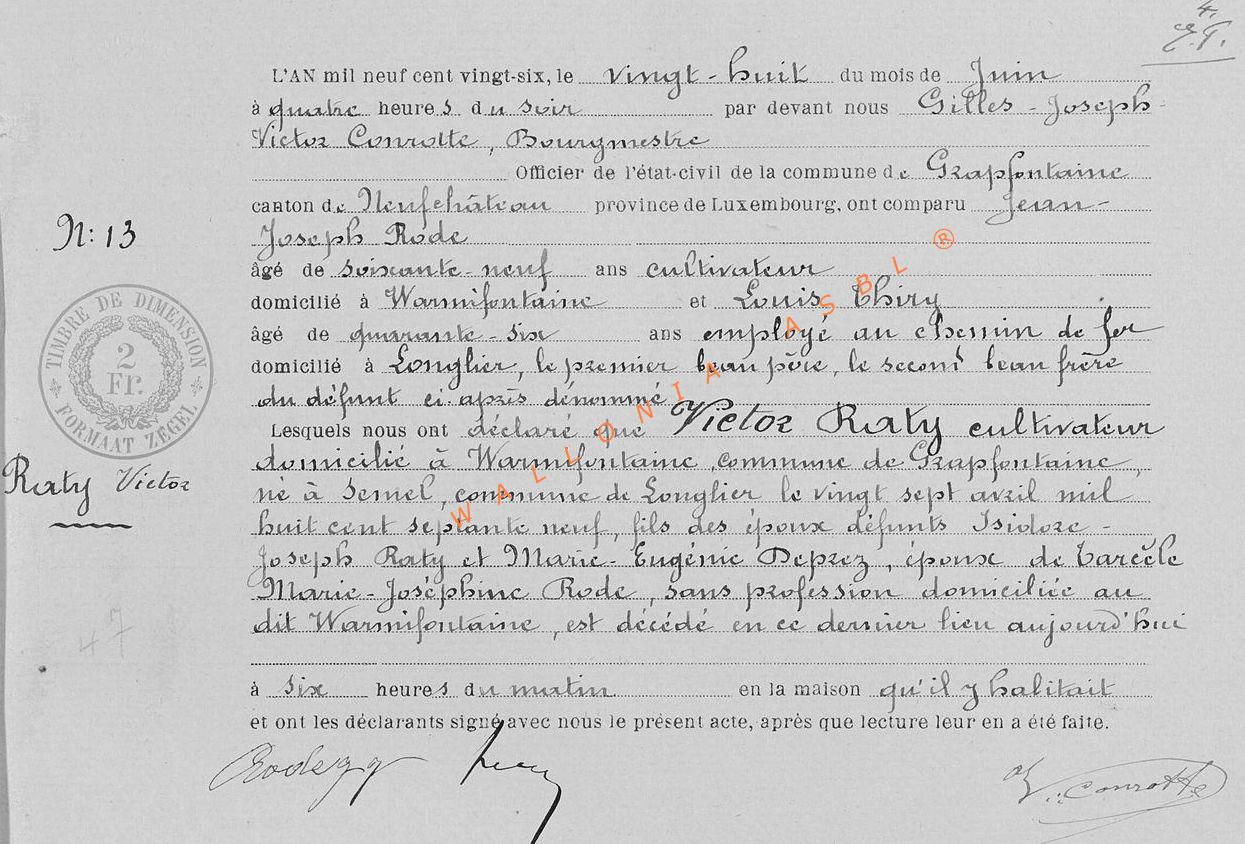 4.
L'AN mil neuf cent vingt-six, le vingt-huit du mois de Juin
à quatre heures du soir par devant nous Gilles-Joseph-
Victor Conrotte, Bourgmestre
Officier de l'état-civil de la commune de Grapfontaine
canton de Neufchâteau province de Luxembourg, ont comparu Jean-
Joseph Rode
âgé de soixante-neuf ans cultivateur
domicilié à Warmifontaine et Louis Thiry
âgé de quarante-six ans employé au chemin de fer
domicilié à Longlier, le premier beau père, le second beau frère
du défunt ci-après dénommé
Lesquels nous ont déclaré que Victor Raty cultivateur
domicilié à Warmifontaine, commune de Grapfontaine,
né à Semel, commune de Longlier le vingt sept avril mil
huit cent septante neuf, fils des époux défunts Isidore-
Joseph Raty et Marie-Eugénie Deprez, époux de Tarcèle
Marie-Joséphine Rode, sans profession domiciliée au
dit Warmifontaine, est décédé en ce dernier lieu aujourd'hui
à six heures du matin en la maison qu'il y habitait
et ont les déclarants signé avec nous le présent acte, après que lecture leur en a été faite.
V. Conrotte
N: 13
TIMBRE DE DIMENSION
2
Fr.
FORMAAT ZEGEL
Raty Victor
47
WALLONIA ASBL ®